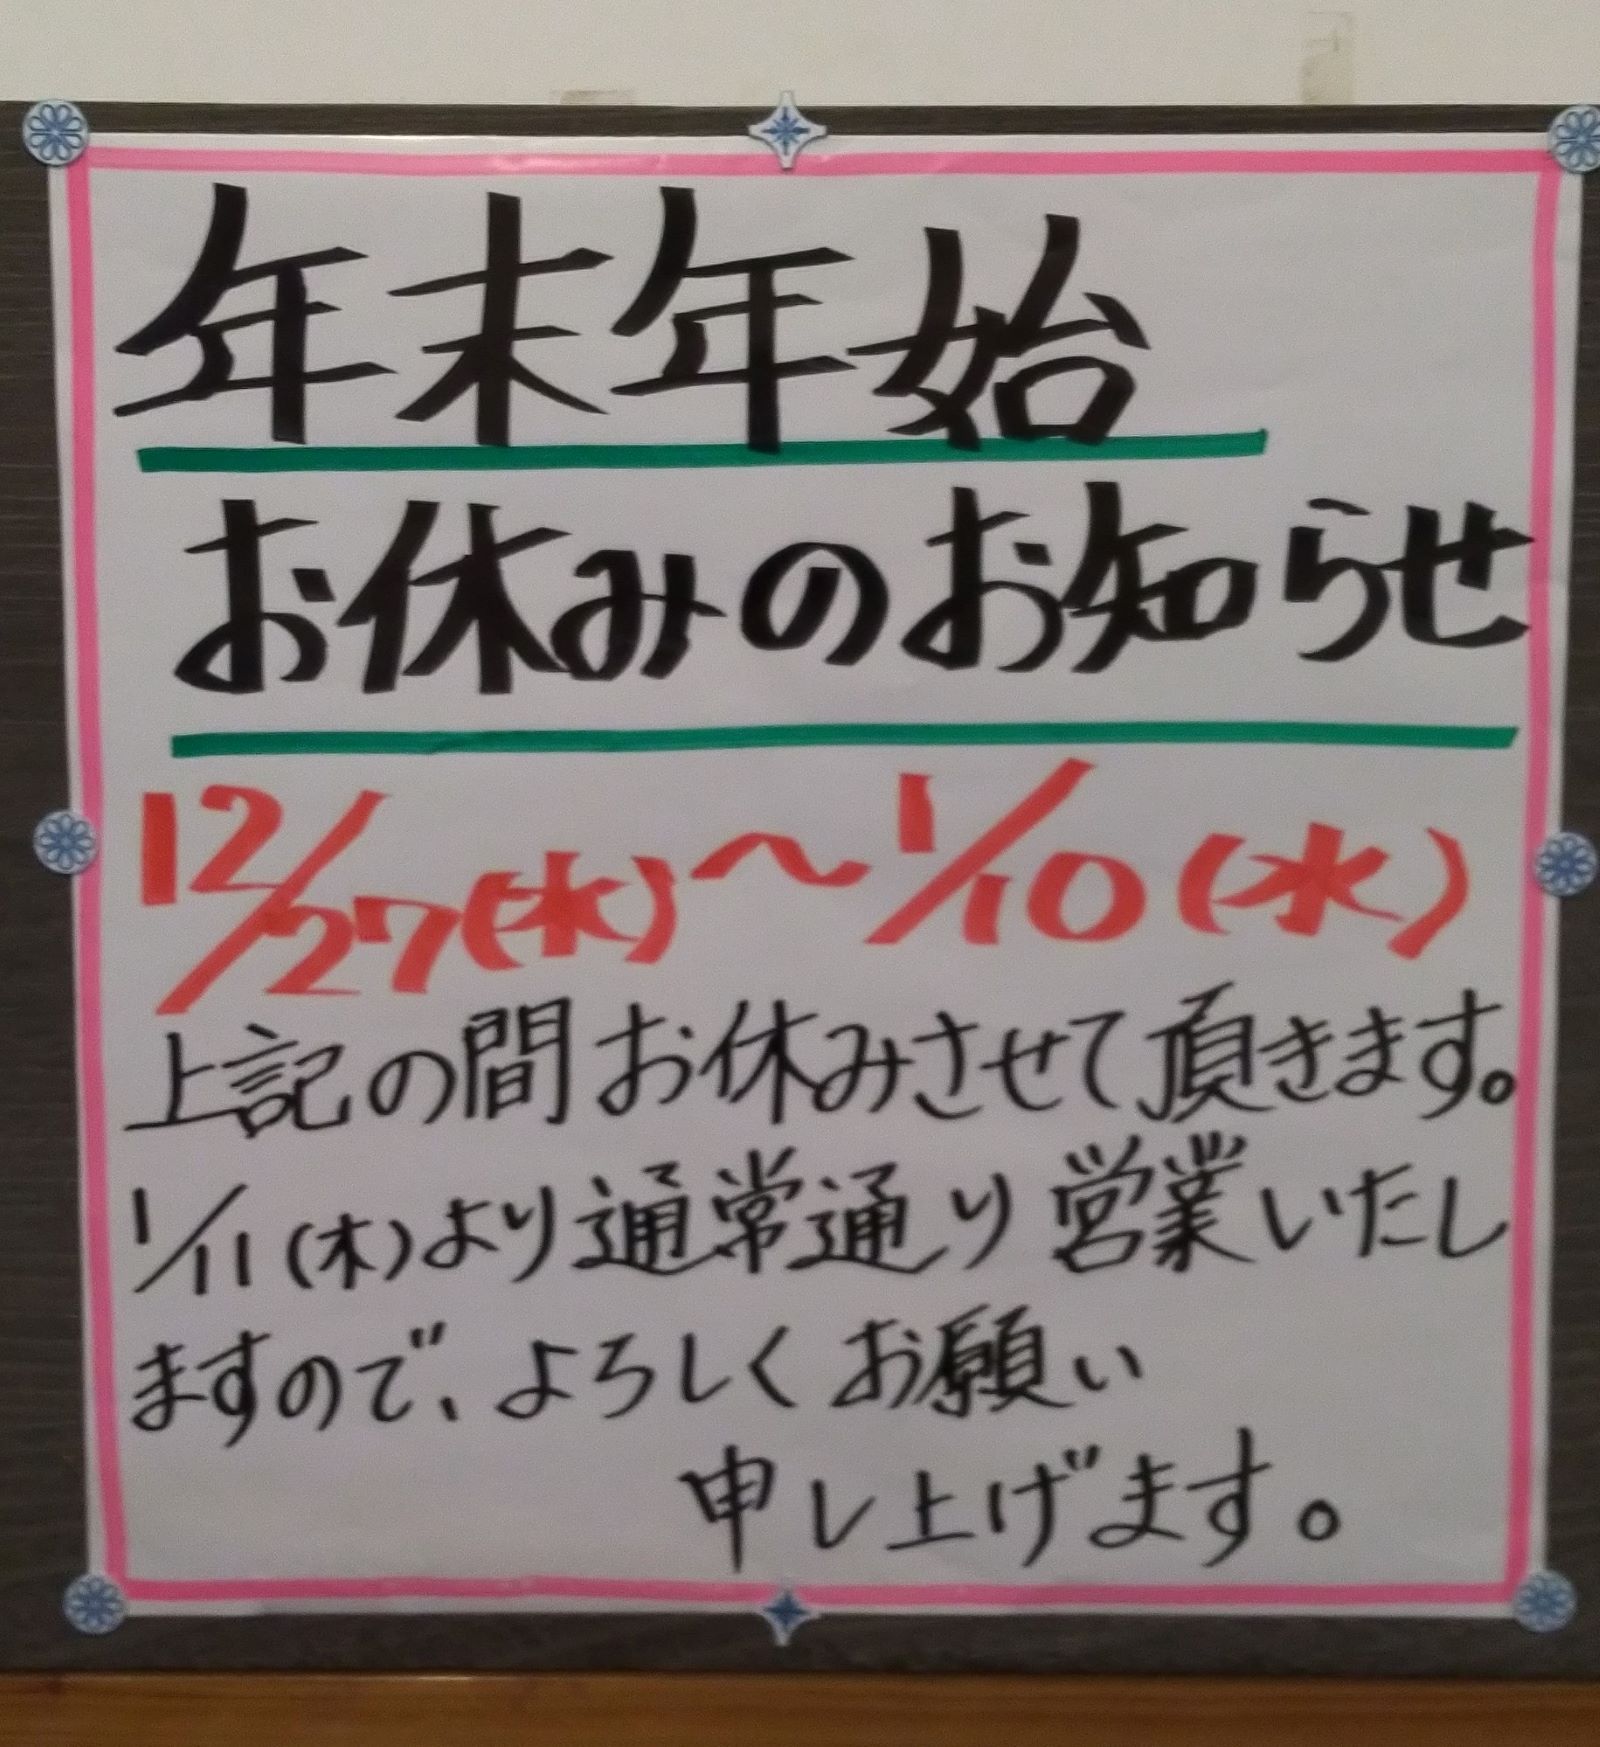 年末年始
お休みのお知らせ
12/27(水)～1/10(水)
上記の間お休みさせて頂きます。
1/11(木)より通常通り営業いたし
ますので、よろしくお願い
申し上げます。